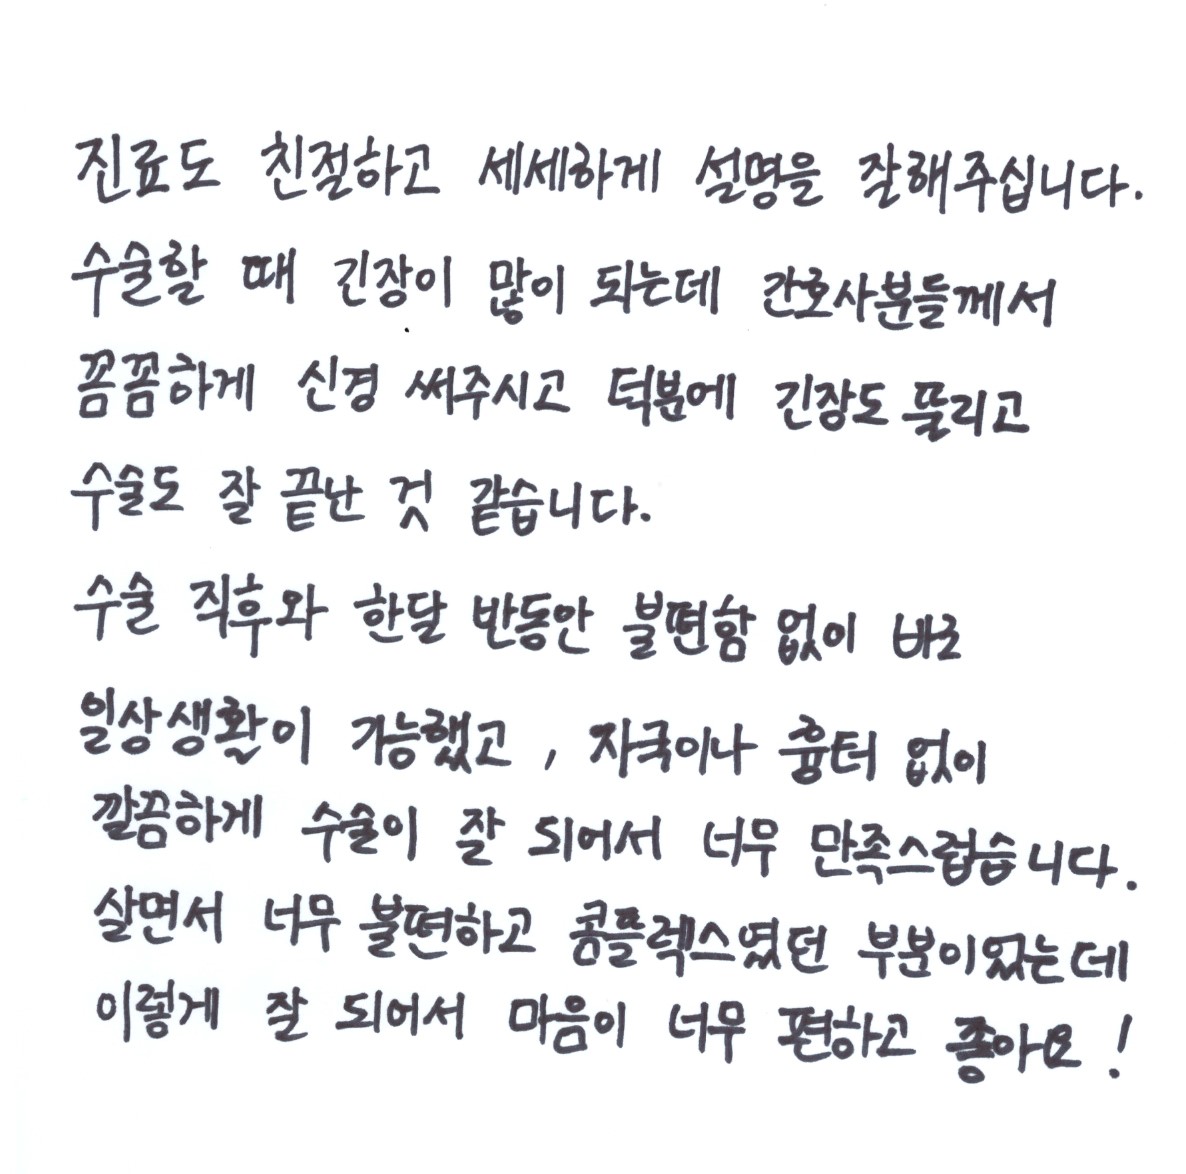 진료도 친절하고 세세하게 설명을 잘해주십니다.
수술할 때 긴장이 많이 되는데 간호사분들께서
꼼꼼하게 신경 써주시고 덕분에 긴장도 풀리고
수술도 잘 끝난 것 같습니다.
수술 직후와 한달 반동안 불편함 없이 바로
일상생활이 가능했고, 자국이나 흉터 없이
깔끔하게 수술이 잘 되어서 너무 만족스럽습니다.
살면서 너무 불편하고 콤플렉스였던 부분이었는데
이렇게 잘 되어서 마음이 너무 편하고 좋아요!